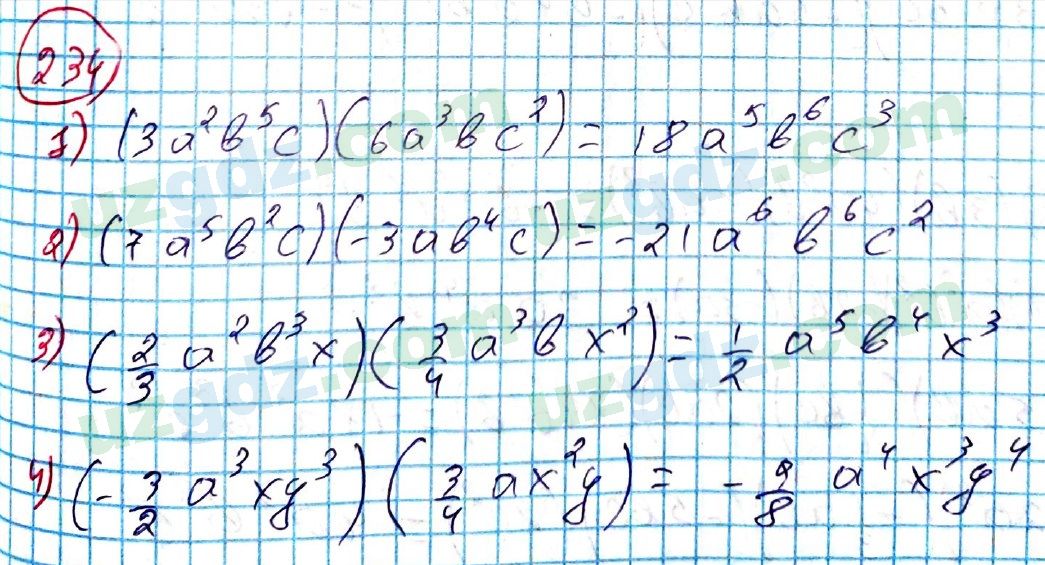 234
1) (3a²b⁵c)(6a³bc²) = 18a⁵b⁶c³
2) (7a⁵b²c)(-3ab⁴c) = -21a⁶b⁶c²
3) (2/3 a²b³x)(3/4 a³bx²) = 1/2 a⁵b⁴x³
4) (-3/2 a³xy³)(3/4 ax²y) = -9/8 a⁴x³y⁴
uzgdz.com
uzgdz.com
uzgdz.com
uzgdz.com